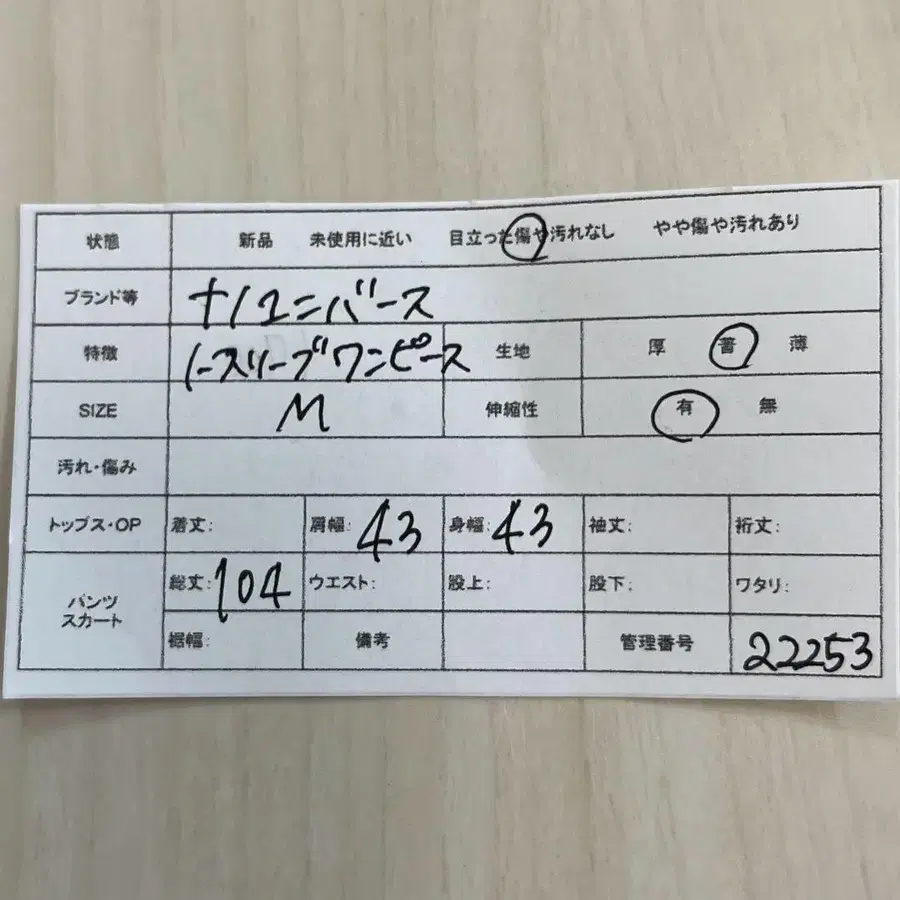 状態 新品 未使用に近い 目立った傷や汚れなし やや傷や汚れあり
ブランド等 ナノユニバース
特徴 ノースリーブワンピース 生地 厚 普 薄
SIZE M 伸縮性 有 無
汚れ・傷み
トップス・OP 着丈: 肩幅: 43 身幅: 43 袖丈: 裄丈:
パンツ スカート 総丈: 104 ウエスト: 股上: 股下: ワタリ:
裾幅: 備考 管理番号 22253